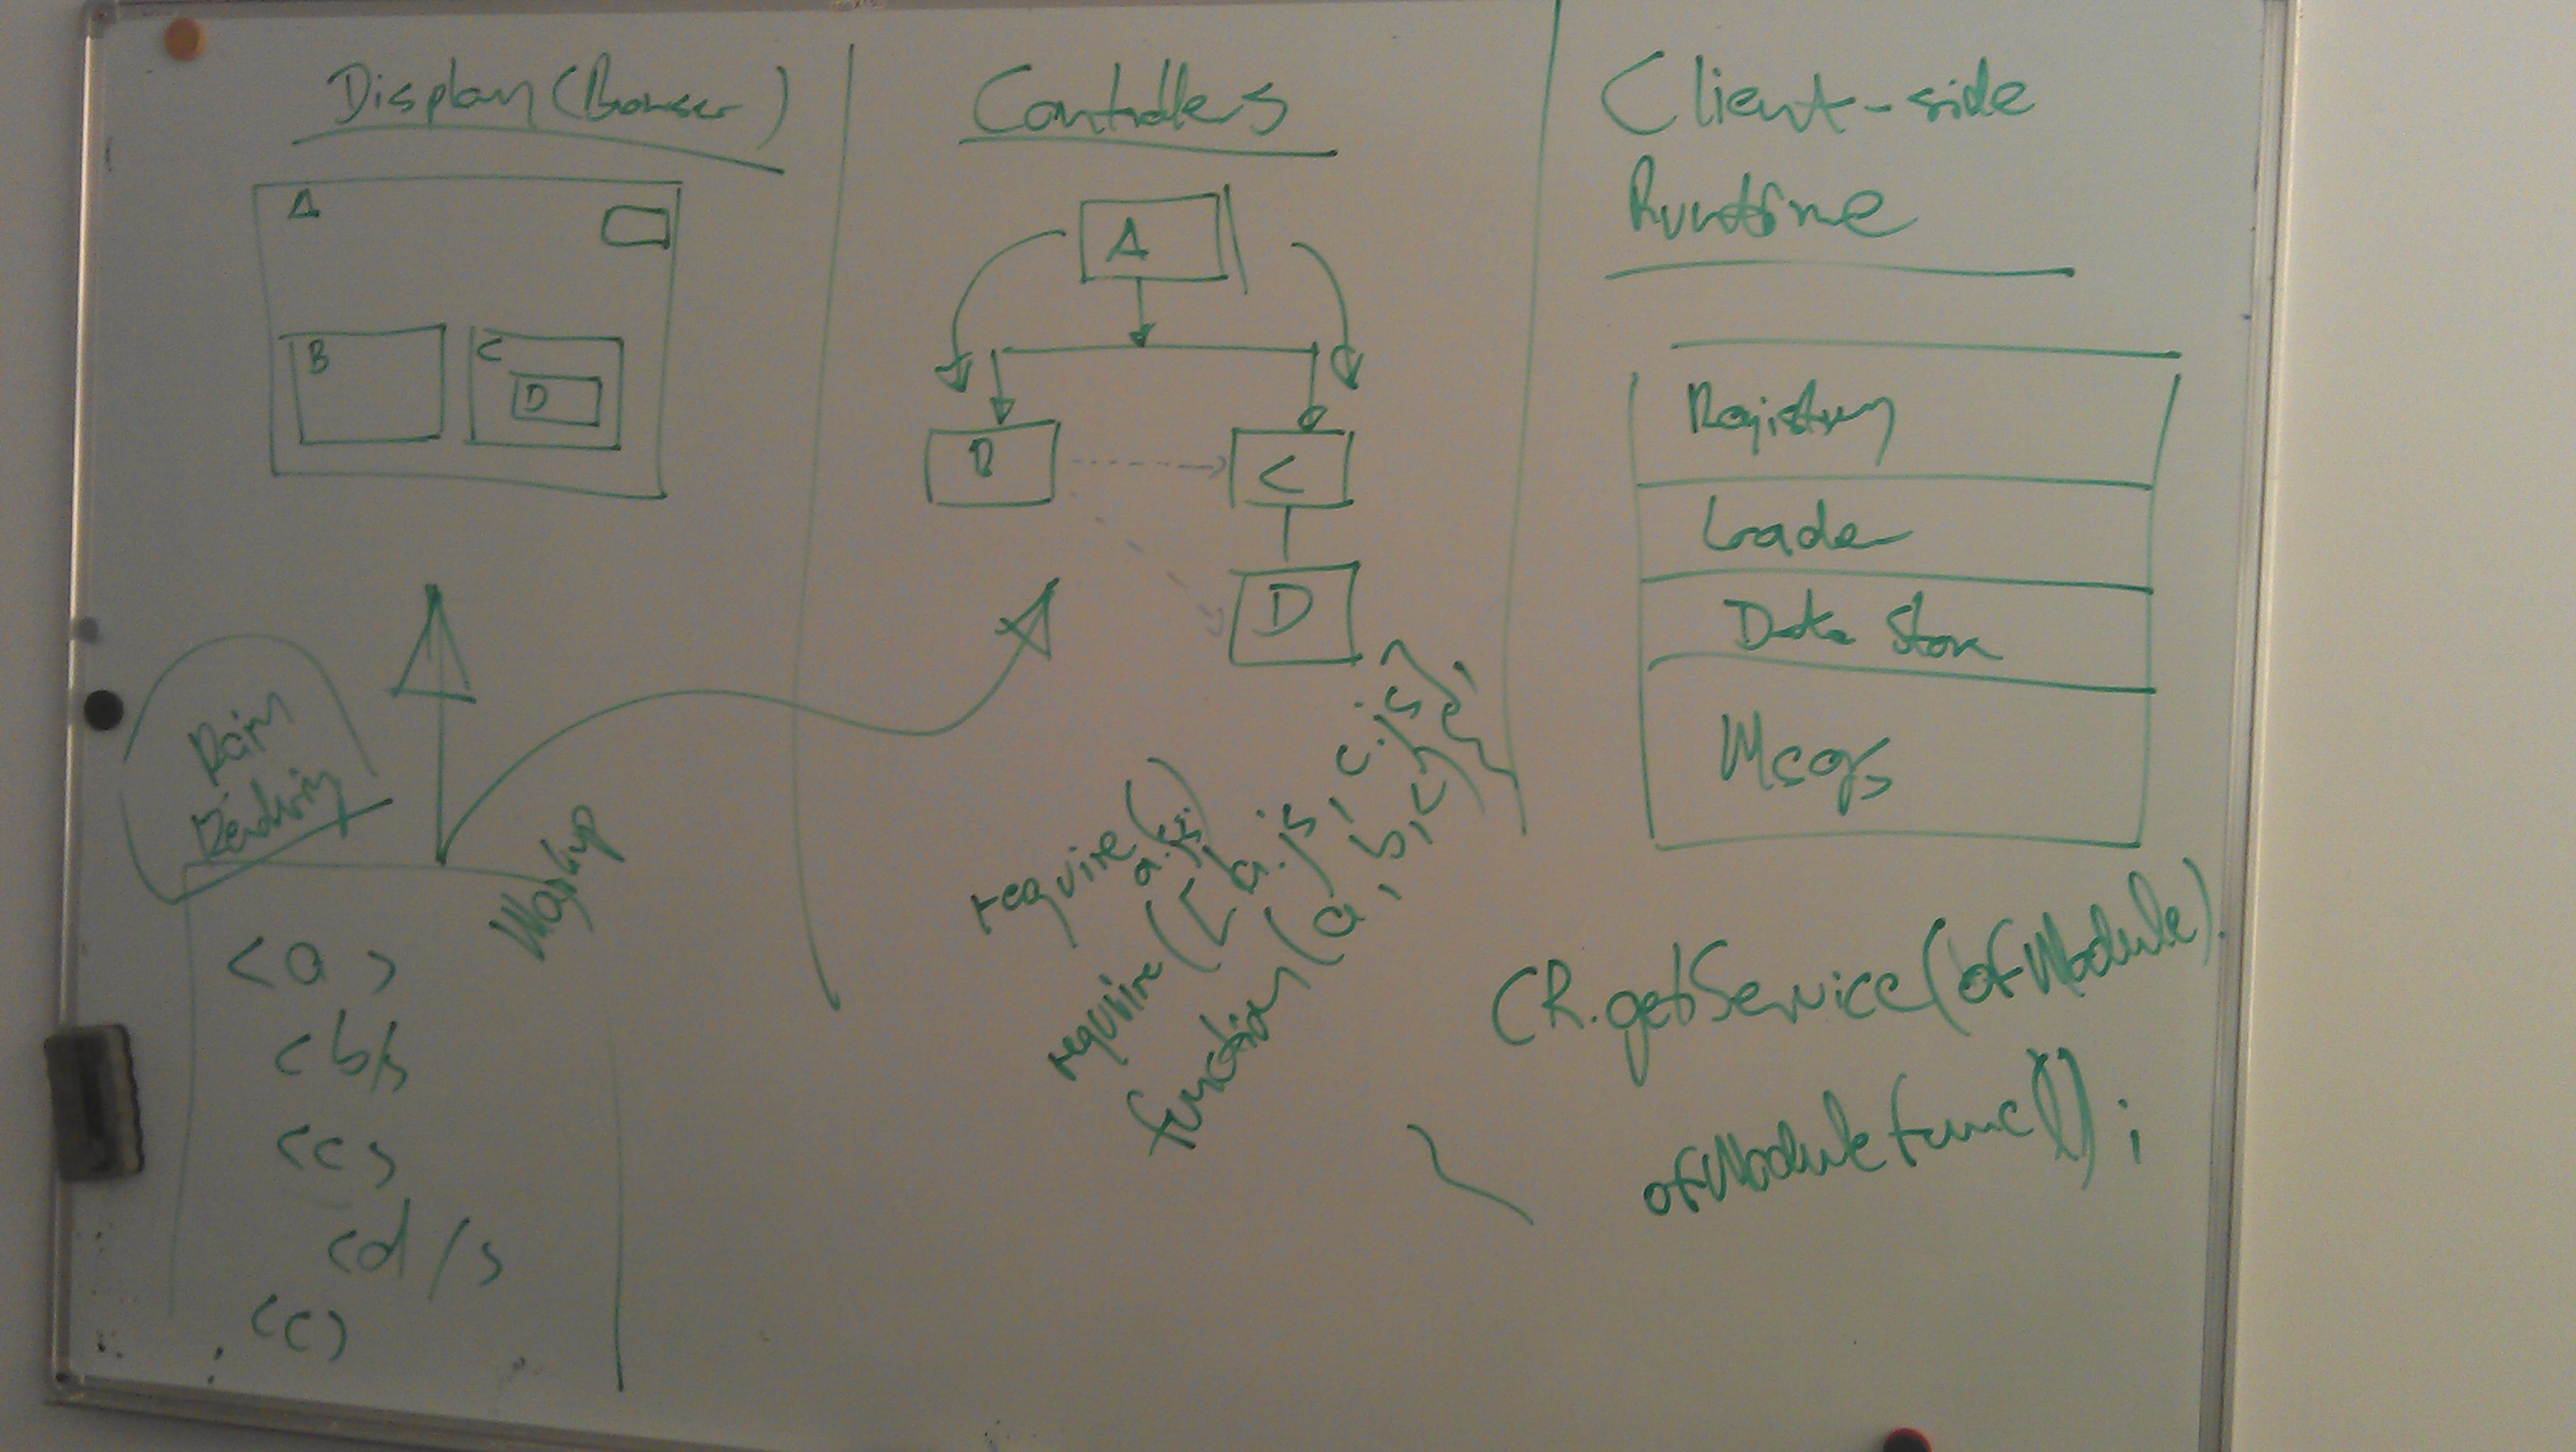 Display (Browser)
A
B
C
D
Rain
Rendering
Markup
<a>
<b/>
<c>
<d/>
<c>
Controllers
A
B
C
D
require(
a.js)
require([a.js, c.js],
function(a, b, c) {
}
Client-side
Runtime
Registry
Loader
Data Store
Msgs
CR.getService(ofModule).
ofModulefunc();